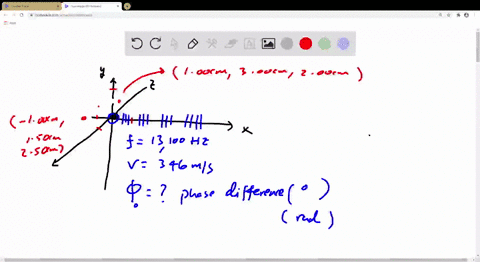 (1.00cm, 3.00cm, 2.00cm)
y
z
(-1.00cm,
1.50cm
2.50cm)
x
f = 13,100 HZ
V = 346 m/s
ϕ = ? phase difference (°)
(rad)